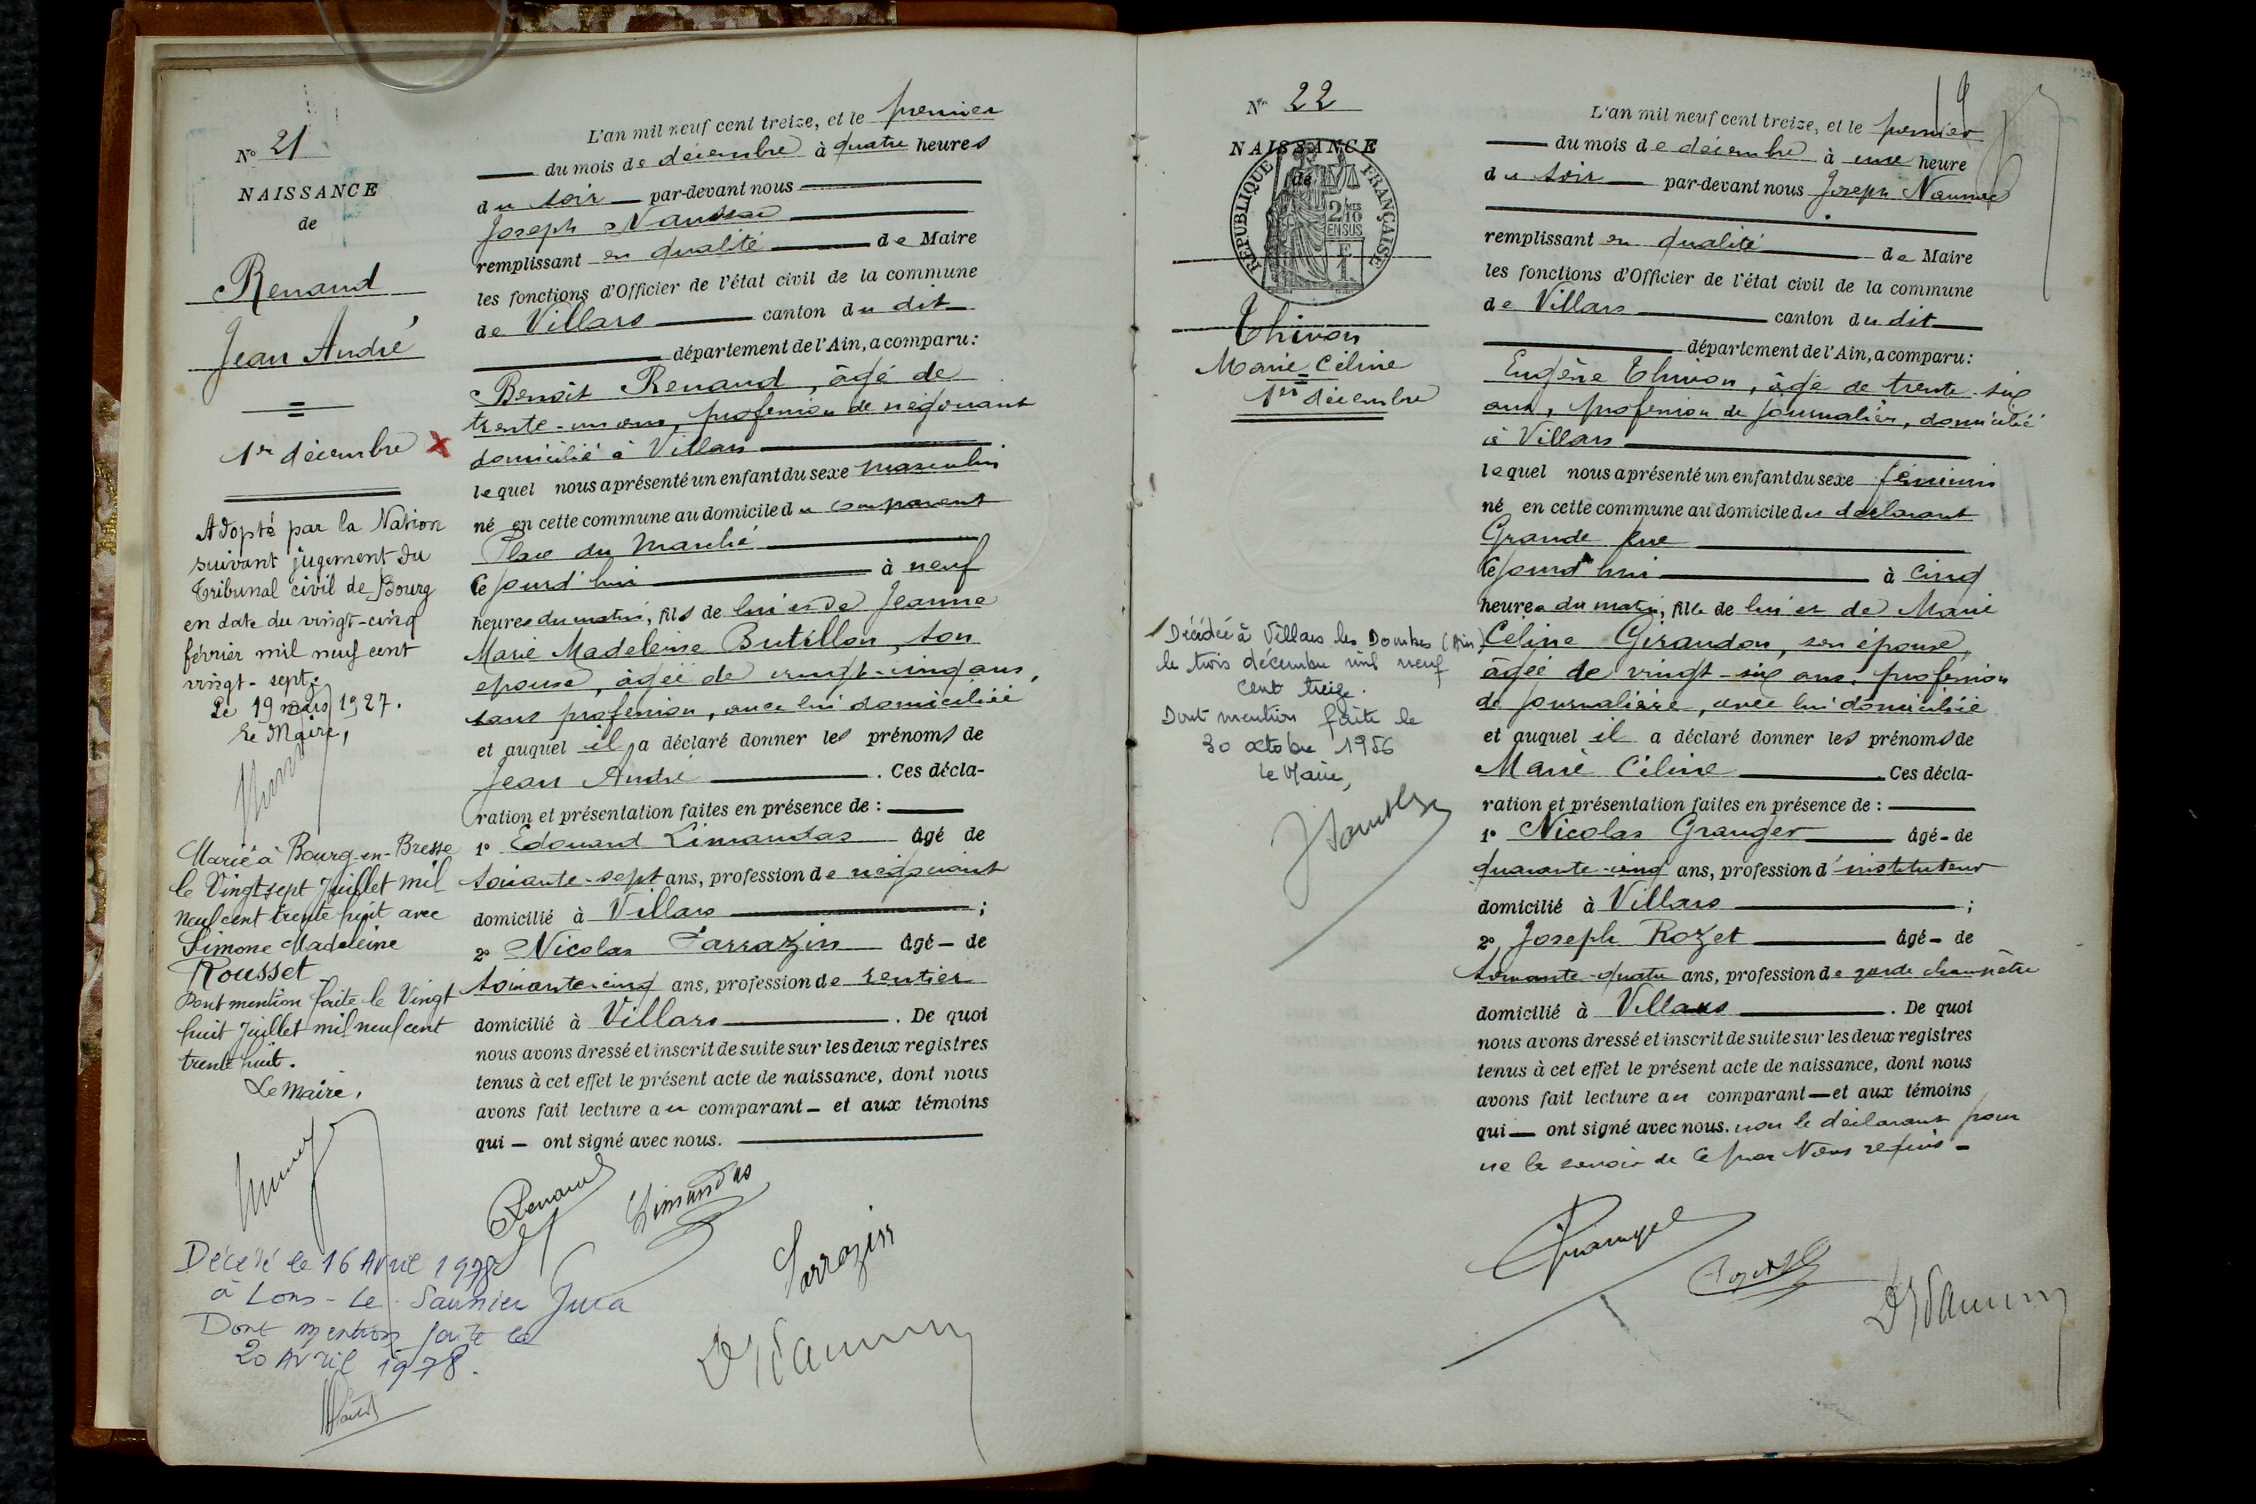 N° 21
NAISSANCE
de
Renaud
Jean André
1er décembre X
Adopté par la Nation
suivant jugement du
Tribunal civil de Bourg
en date du vingt-cinq
février mil neuf cent
vingt-sept.
Le 19 mars 1927.
Le Maire,
Marié à Bourg-en-Bresse
le Vingt sept Juillet mil
neuf cent trente huit avec
Simone Madeleine
Rousset
Dont mention faite le Vingt
huit Juillet mil neuf cent
trente huit.
Le Maire,
Décédé le 16 Avril 1978
à Lons-Le-Saunier Jura
Dont mention faite le
20 Avril 1978.
L'an mil neuf cent treize, et le premier
du mois de décembre à quatre heures
du soir par-devant nous
Joseph
remplissant en qualité de Maire
les fonctions d'Officier de l'état civil de la commune
de Villars canton du dit
département de l'Ain, a comparu:
Benoît Renaud, âgé de
trente-un ans, profession de négociant
domicilié à Villars
lequel nous a présenté un enfant du sexe masculin
né en cette commune au domicile du comparant
Place du Marché
Cejourd'hui à neuf
heures du matin, fils de lui et de Jeanne
Marie Madeleine Butillon, son
épouse, âgée de vingt-cinq ans,
sans profession, avec lui domiciliée
et auquel il a déclaré donner les prénoms de
Jean André . Ces décla-
ration et présentation faites en présence de :
1° Edouard Limandas âgé de
soixante-sept ans, profession de négociant
domicilié à Villars ;
2° Nicolas Sarrazin âgé - de
soixante-cinq ans, profession de rentier
domicilié à Villars . De quoi
nous avons dressé et inscrit de suite sur les deux registres
tenus à cet effet le présent acte de naissance, dont nous
avons fait lecture au comparant - et aux témoins
qui - ont signé avec nous.
Renaud
Limandas
Sarrazin
N° 22
NAISSANCE
de
RÉPUBLIQUE FRANÇAISE
2/10 EN SUS
Thivon
Marie Céline
1er décembre
Décédée à Villars les Dombes (Ain)
le trois décembre mil neuf
cent treize.
Dont mention faite le
30 octobre 1956
Le Maire,
19
L'an mil neuf cent treize, et le premier
du mois de décembre à une heure
du soir par-devant nous Joseph
remplissant en qualité de Maire
les fonctions d'Officier de l'état civil de la commune
de Villars canton du dit
département de l'Ain, a comparu:
Eugène Thivon, âgé de trente-six
ans, profession de journalier, domicilié
à Villars
lequel nous a présenté un enfant du sexe féminin
né en cette commune au domicile du déclarant
Grande Rue
Cejourd'hui à cinq
heures du matin, fille de lui et de Marie
Céline Giraudon, son épouse,
âgée de vingt-six ans, profession
de journalière, avec lui domiciliée
et auquel il a déclaré donner les prénoms de
Marie Céline . Ces décla-
ration et présentation faites en présence de :
1° Nicolas Granger âgé - de
quarante-cinq ans, profession d'instituteur
domicilié à Villars ;
2° Joseph Rozet âgé - de
soixante-quatre ans, profession de garde champêtre
domicilié à Villars . De quoi
nous avons dressé et inscrit de suite sur les deux registres
tenus à cet effet le présent acte de naissance, dont nous
avons fait lecture au comparant - et aux témoins
qui - ont signé avec nous. non le déclarant pour
ne le savoir de ce par Nous requis -
Granger